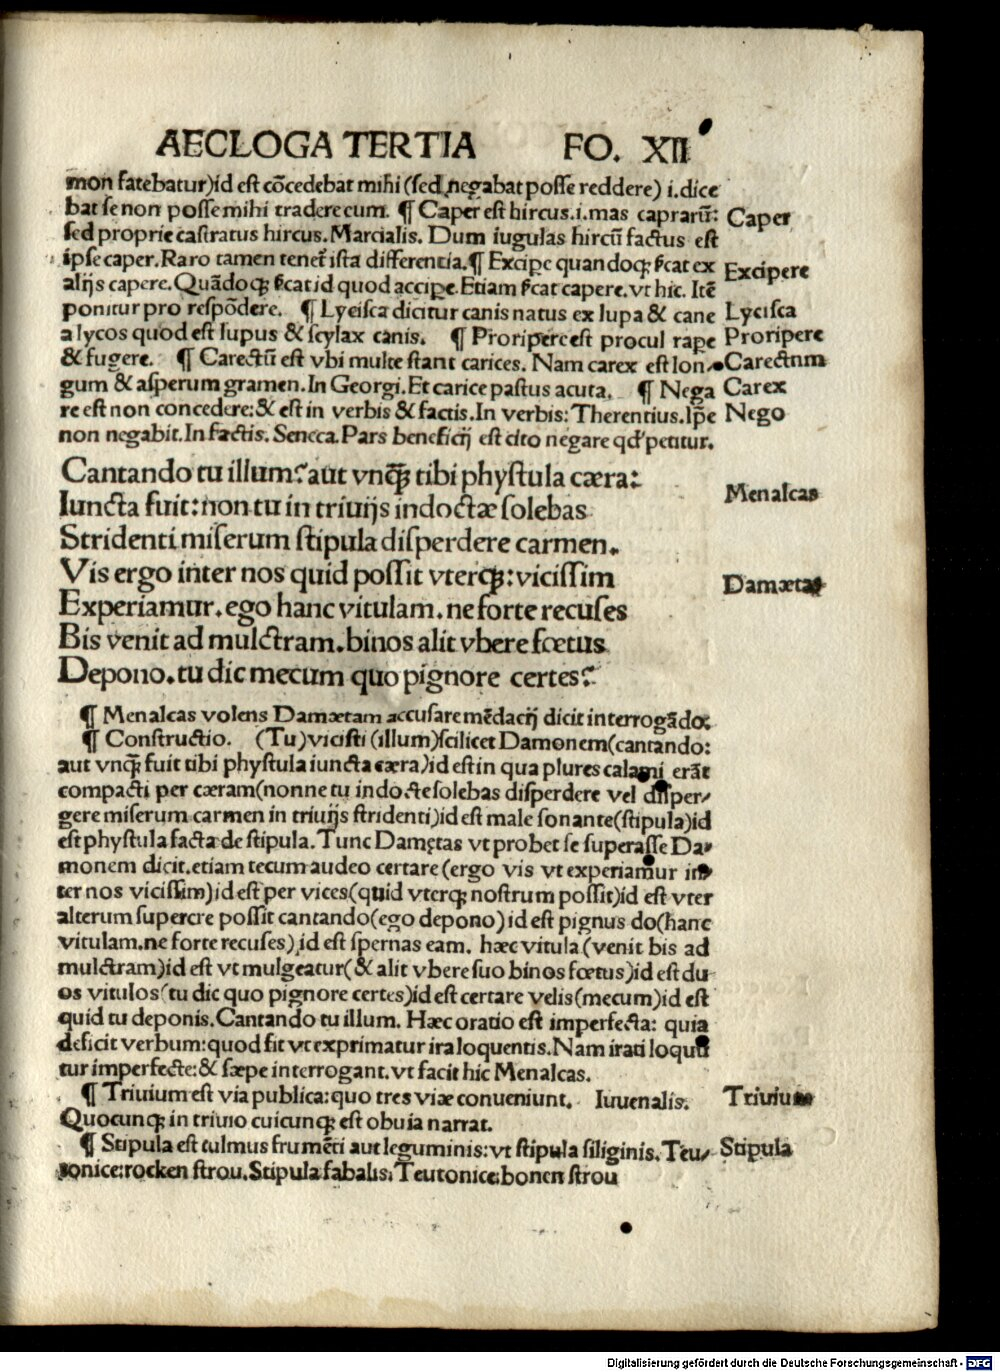 AECLOGA TERTIA FO. XII
mon fatebatur)id est cõcedebat mihi (sed negabat posse reddere) i.dice
bat se non posse mihi tradere cum. ¶ Caper est hircus.i.mas caprarũ: Caper
sed proprie castratus hircus. Marcialis. Dum iugulas hircũ factus est
ipse caper. Raro tamen tenet᷑ ista differentia. ¶ Excipe quandoqꝫ ſ̄cat ex Excipere
alijs capere. Quãdoqꝫ ſ̄cat id quod accipe. Etiam ſ̄cat capere. vt hic. Itẽ
ponitur pro respõdere. ¶ Lycisca dicitur canis natus ex lupa & cane Lycisca
a lycos quod est lupus & scylax canis. ¶ Proripere est procul rape Proripere
& fugere. ¶ Carectũ est vbi multe stant carices. Nam carex est lon⸗ Carectum
gum & asperum gramen. In Georgi. Et carice pastus acuta. ¶ Nega Carex
re est non concedere: & est in verbis & factis. In verbis: Therentius. Ip̄e Nego
non negabit. In factis. Seneca. Pars beneficij est cito negare qd' petitur.
Cantando tu illum? aut vnqꝫ tibi phystula cæra: Menalcas
Iuncta fuit: non tu in triuijs indoctæ solebas
Stridenti miserum stipula disperdere carmen.
Vis ergo inter nos quid possit vterqꝫ: vicissim Damætas
Experiamur. ego hanc vitulam. ne forte recuses
Bis venit ad mulctram. binos alit vbere fœtus
Depono. tu dic mecum quo pignore certes?
¶ Menalcas volens Damætam accusare mẽdacij dicit interrogãdo:
¶ Constructio. (Tu) vicisti (illum) scilicet Damonem (cantando:
aut vnqꝫ fuit tibi phystula iuncta cæra) id est in qua plures calami erãt
compacti per cæram (nonne tu indocte solebas disperdere vel disper⸗
gere miserum carmen in triuijs stridenti) id est male sonante (stipula) id
est phystula facta de stipula. Tunc Damętas vt probet se superasse Da⸗
monem dicit. etiam tecum audeo certare (ergo vis vt experiamur in⸗
ter nos vicissim) id est per vices (quid vterqꝫ nostrum possit) id est vter
alterum superere possit cantando (ego depono) id est pignus do (hanc
vitulam. ne forte recuses) id est spernas eam. hæc vitula (venit bis ad
mulctram) id est vt mulgeatur (& alit vbere suo binos fœtus) id est du
os vitulos (tu dic quo pignore certes) id est certare velis (mecum) id est
quid tu deponis. Cantando tu illum. Hæc oratio est imperfecta: quia
deficit verbum: quod fit vt exprimatur ira loquentis. Nam irati loquũ
tur imperfecte: & sæpe interrogant. vt facit hic Menalcas.
¶ Triuium est via publica: quo tres viæ conueniunt. Iuuenalis. Triuium
Quocunqꝫ in triuio cuicunqꝫ est obuia narrat.
¶ Stipula est culmus frumẽti aut leguminis: vt stipula siliginis. Teu⸗ Stipula
tonice: rocken strou. Stipula fabalis. Teutonice: bonen strou
Digitalisierung gefördert durch die Deutsche Forschungsgemeinschaft - DFG